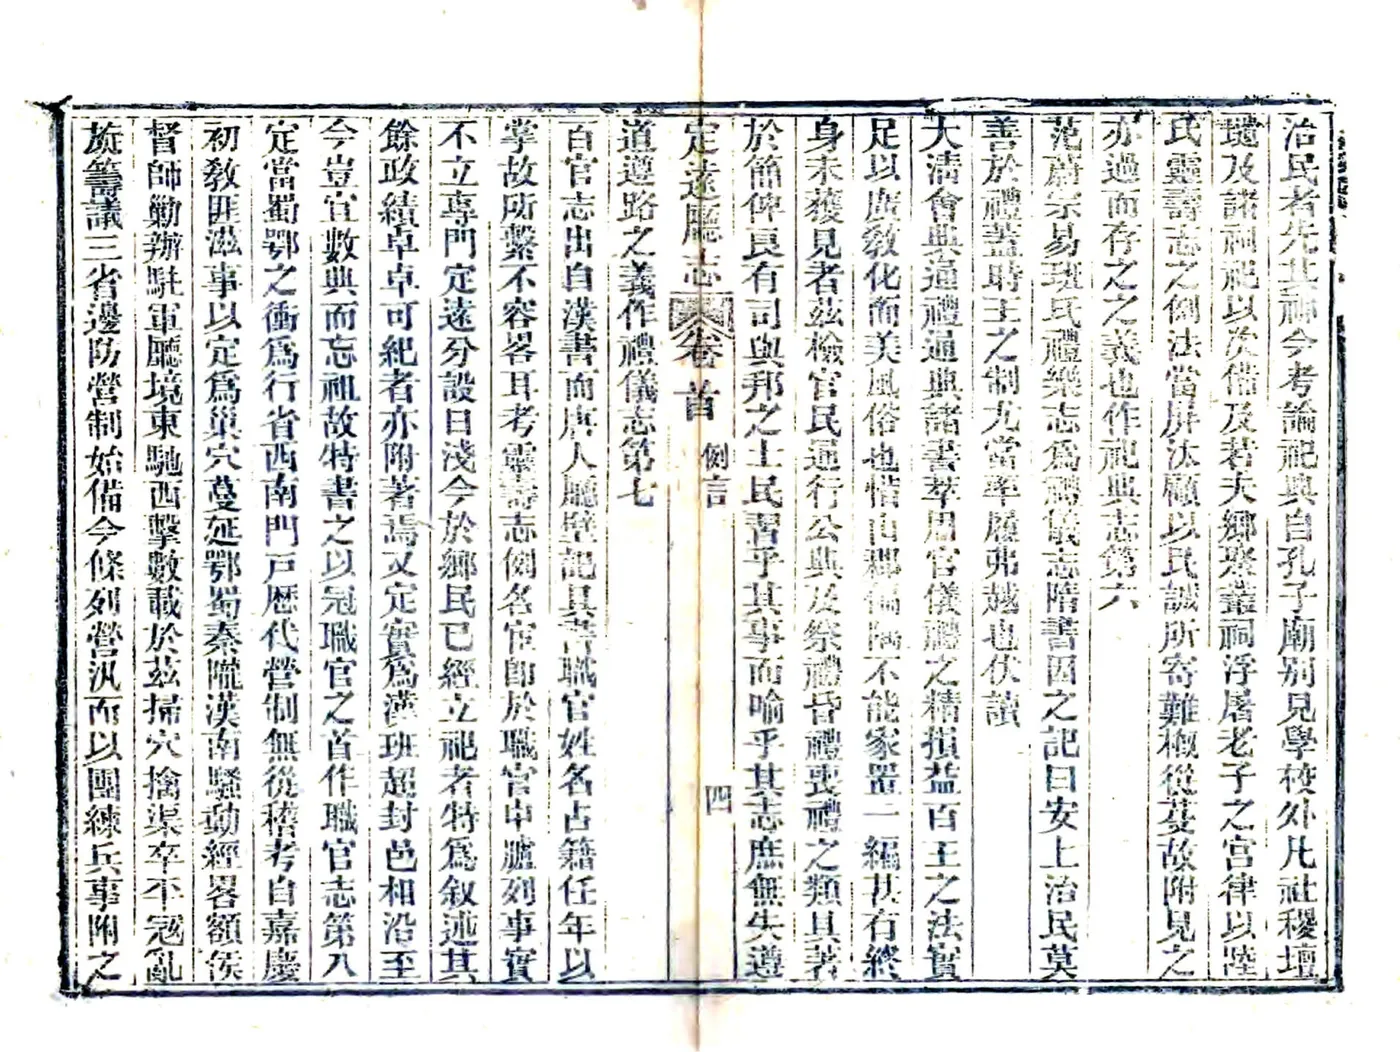 治民者先其神今考論祀典自孔子廟別見學校外凡社稷壇
壝及諸祠祀以次備及若夫鄉聚叢祠浮屠老子之宮律以陸
氏靈壽志之例法當屏汰顧以民誠所寄難概從芟故附見之
亦過而存之之義也作祀典志第六
范蔚宗易班氏禮樂志為禮儀志隋書因之記曰安上治民莫
善於禮葢時王之制尤當率履弗越也伏讀
大清會典通禮通典諸書萃用官儀禮之精損益百王之法實
足以廣敎化而美風俗也惜山鄉偏隅不能家置一編甚有終
身未獲見者茲檢官民通行公典及祭禮昏禮喪禮之類具著
於簡俾良有司與邦之士民習乎其事而喻乎其志庶無失遵
定遠廳志 卷首 例言 四
道遵路之義作禮儀志第七
百官志出自漢書而唐人廳壁記具書職官姓名占籍任年以
掌故所繫不容畧耳考靈壽志例名宦卽於職官中臚列事實
不立專門定遠分設日淺今於鄉民已經立祀者特為叙述其
餘政績卓卓可紀者亦附著焉又定實為漢班超封邑相沿至
今豈宜數典而忘祖故特書之以冠職官之首作職官志第八
定當蜀鄂之衝為行省西南門戸歴代營制無從稽考自嘉慶
初敎匪滋事以定為巢穴蔓延鄂蜀秦隴漢南騷動經畧額侯
督師勦辦駐軍廳境東馳西擊數載於茲掃穴擒渠卒平冦亂
旋籌議三省邊防營制始備今條列營汛而以團練兵事附之